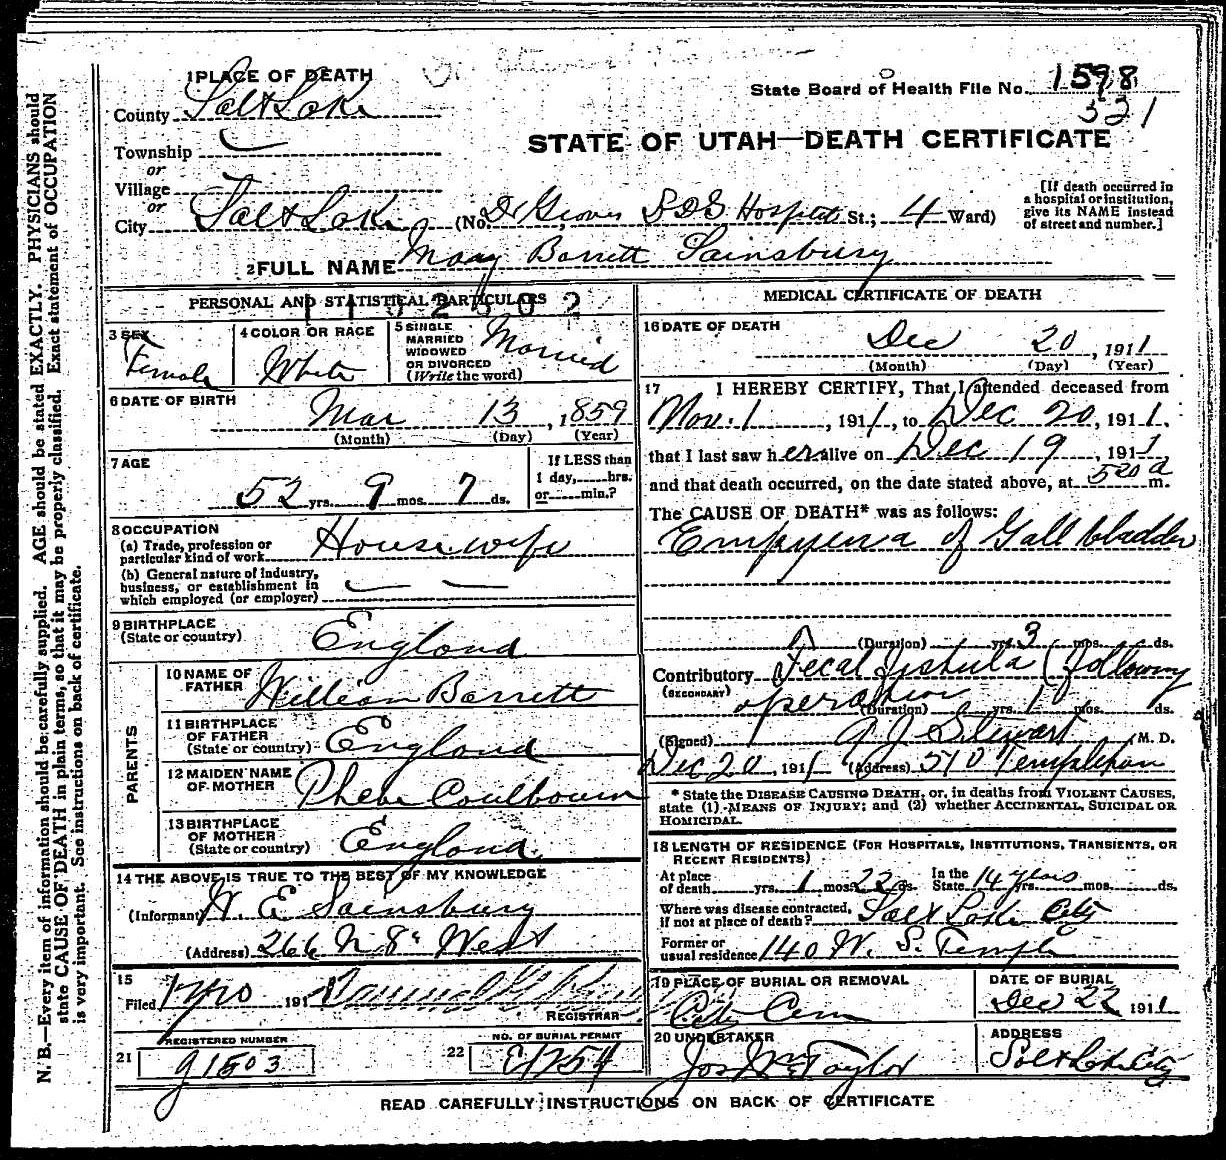 1 PLACE OF DEATH
County Salt Lake
Township
or
Village
or
City Salt Lake (No. Dr Groves LDS Hospital St.; 4 Ward)
State Board of Health File No. 1598
321
STATE OF UTAH—DEATH CERTIFICATE
[If death occurred in
a hospital or institution,
give its NAME instead
of street and number.]
2 FULL NAME Mary Barrett Sainsbury
N. B.—Every item of information should be carefully supplied. AGE should be stated EXACTLY. PHYSICIANS should
state CAUSE OF DEATH in plain terms, so that it may be properly classified. Exact statement of OCCUPATION
is very important. See instructions on back of certificate.
PERSONAL AND STATISTICAL PARTICULARS
3 SEX
Female
4 COLOR OR RACE
White
5 SINGLE
MARRIED
WIDOWED
OR DIVORCED
(Write the word)
Married
6 DATE OF BIRTH
Mar 13, 1859
(Month) (Day) (Year)
7 AGE
52 yrs. 9 mos. 7 ds.
If LESS than
1 day, hrs.
or min.?
8 OCCUPATION
(a) Trade, profession or
particular kind of work Housewife
(b) General nature of industry,
business, or establishment in
which employed (or employer)
9 BIRTHPLACE
(State or country) England
PARENTS
10 NAME OF
FATHER William Barrett
11 BIRTHPLACE
OF FATHER
(State or country) England
12 MAIDEN NAME
OF MOTHER Phebe Coulbourn
13 BIRTHPLACE
OF MOTHER
(State or country) England
14 THE ABOVE IS TRUE TO THE BEST OF MY KNOWLEDGE
(Informant W. E. Sainsbury
(Address) 266 N 8 West
15
Filed 191
REGISTRAR
REGISTERED NUMBER
21 g1503
NO. OF BURIAL PERMIT
22
MEDICAL CERTIFICATE OF DEATH
16 DATE OF DEATH
Dec 20, 1911
(Month) (Day) (Year)
17 I HEREBY CERTIFY, That I attended deceased from
Nov. 1, 1911, to Dec 20, 1911,
that I last saw her alive on Dec 19, 1911
and that death occurred, on the date stated above, at 520 a m.
The CAUSE OF DEATH* was as follows:
Empyema of Gall bladder
(Duration) yrs. 3 mos. ds.
Contributory Fecal fistula (following
(SECONDARY) operation (Duration) yrs. 1 mos. ds.
(Signed) A J Stewart M. D.
Dec 20, 1911 (Address) 510 Templeton
* State the DISEASE CAUSING DEATH, or, in deaths from VIOLENT CAUSES,
state (1) MEANS OF INJURY; and (2) whether ACCIDENTAL, SUICIDAL OR
HOMICIDAL.
18 LENGTH OF RESIDENCE (FOR HOSPITALS, INSTITUTIONS, TRANSIENTS, OR
RECENT RESIDENTS)
At place
of death yrs. 1 mos. 22 ds. In the
State 14 years yrs. mos. ds.
Where was disease contracted,
if not at place of death? Salt Lake City
Former or
usual residence 140 W. S. Temple
19 PLACE OF BURIAL OR REMOVAL
City Cem
DATE OF BURIAL
Dec 22 1911
20 UNDERTAKER
Jos Wm Taylor
ADDRESS
Salt Lake City
READ CAREFULLY INSTRUCTIONS ON BACK OF CERTIFICATE